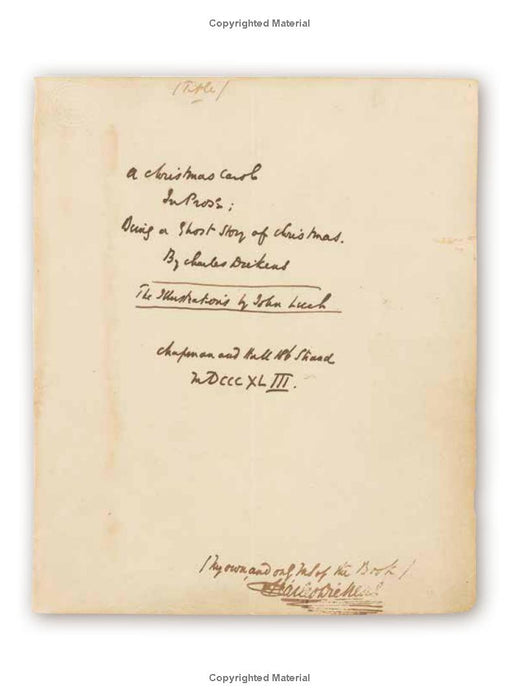 Copyrighted Material
(Title)
A Christmas Carol
In Prose;
Being a Ghost Story of Christmas.
By Charles Dickens
The Illustrations by John Leech
Chapman and Hall 186 Strand
MDCCCXLIII.
(My own, and only MS of the Book)
Charles Dickens
Copyrighted Material